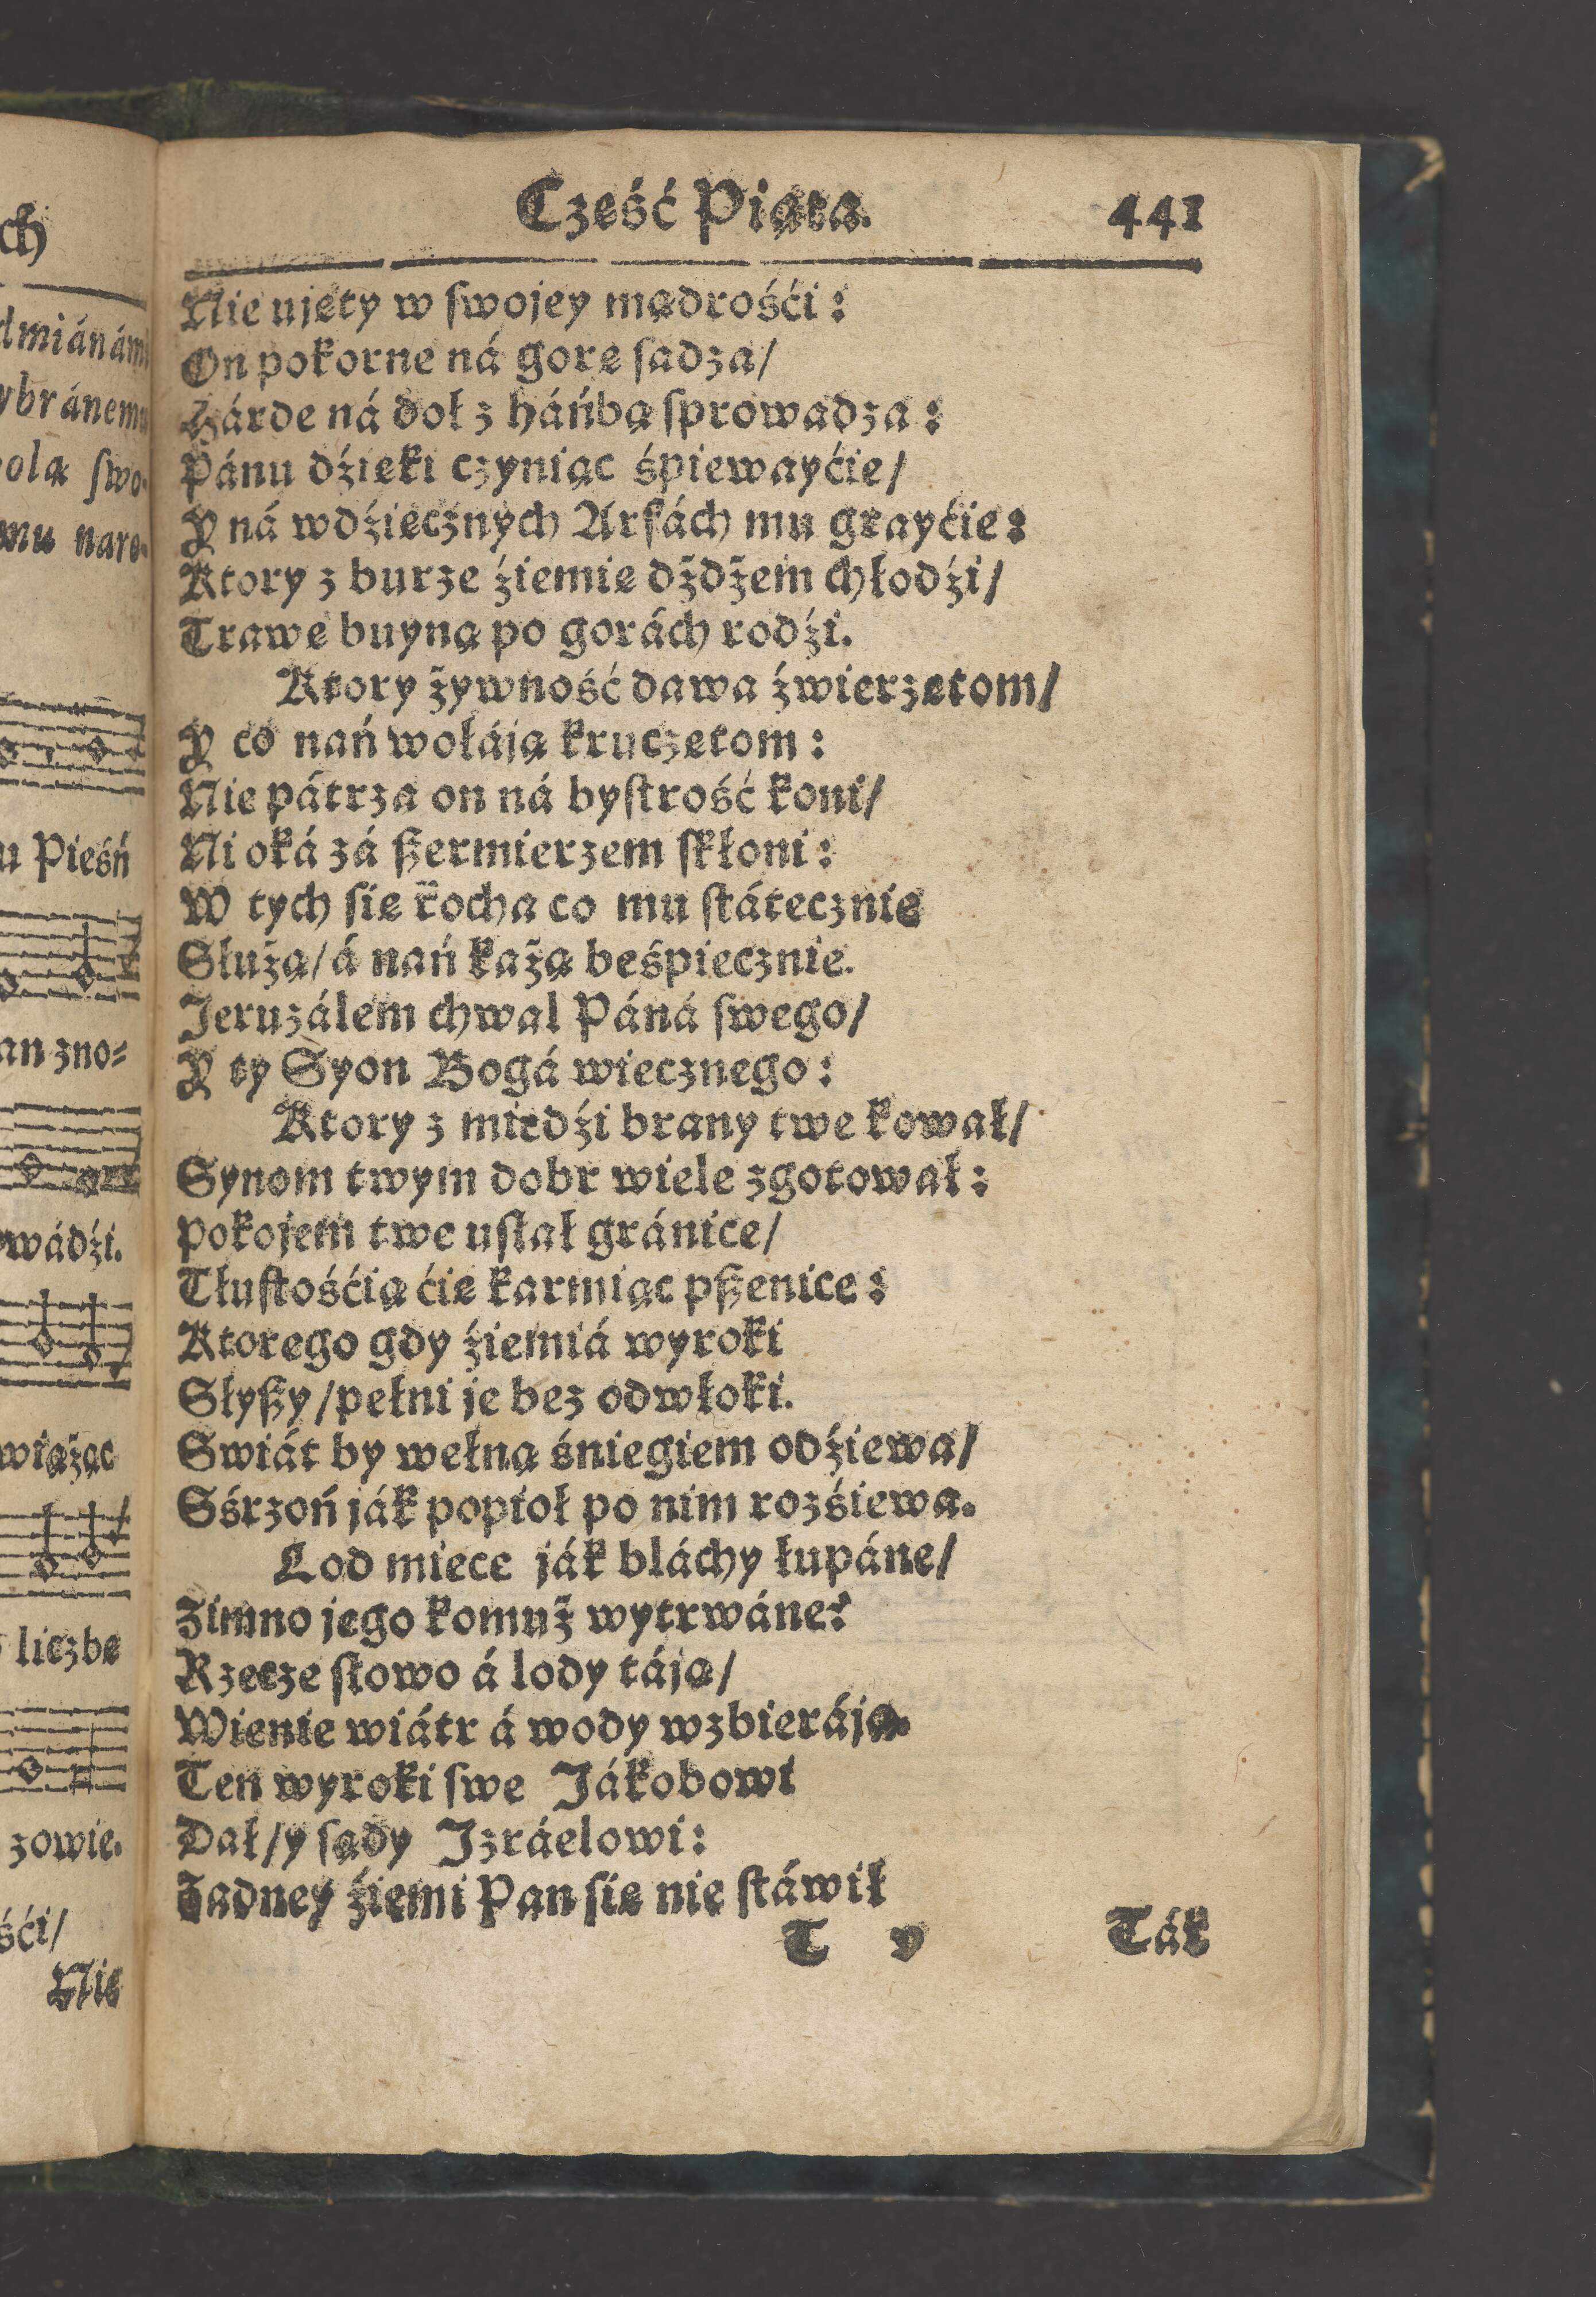 Cześć Piąta. 441
Nie ujęty w swojey mądrośći:
On pokorne ná gorę sadza/
Hárde ná doł z háńbą sprowadza:
Pánu dźięki czyniąc śpiewayćie/
Y ná wdźięcżnych Arfách mu grayćie:
Ktory z burze źiemię dżdżem chłodźi/
Trawę buyną po gorách rodźi.
Ktory żywność dawa źwierzętom/
Y co nań wołáją kruczętom:
Nie pátrza on ná bystrość koni/
Ni oká zá ßermierzem skłoni:
W tych się kocha co mu státecznie
Służą/ á nań każą beśpiecznie.
Jeruzálem chwal Páná swego/
Y ty Syon Bogá wiecznego:
Ktory z miedźi brany twe kował/
Synom twym dobr wiele zgotował:
Pokojem twe usłał gránice/
Tłustośćią ćię karmiąc pßenice:
Ktorego gdy źiemiá wyroki
Słyßy/ pełni je bez odwłoki.
Swiát by wełną śniegiem odźiewa/
Sśrzoń ják popioł po nim rozśiewa.
Lod miece ják bláchy łupáne/
Zimno jego komuż wytrwáne?
Rzecze słowo á lody táją/
Wienie wiátr á wody wzbieráją.
Ten wyroki swe Jákobowi
Dał/ y sądy Izráelowi:
Żadney źiemi Pan się nie stáwił
T v Ták
ch
ola swo-
mu naro-
u Pieśń
an zno-
wádźi.
wiążąc
liczbę
zowie.
śći/
Nie